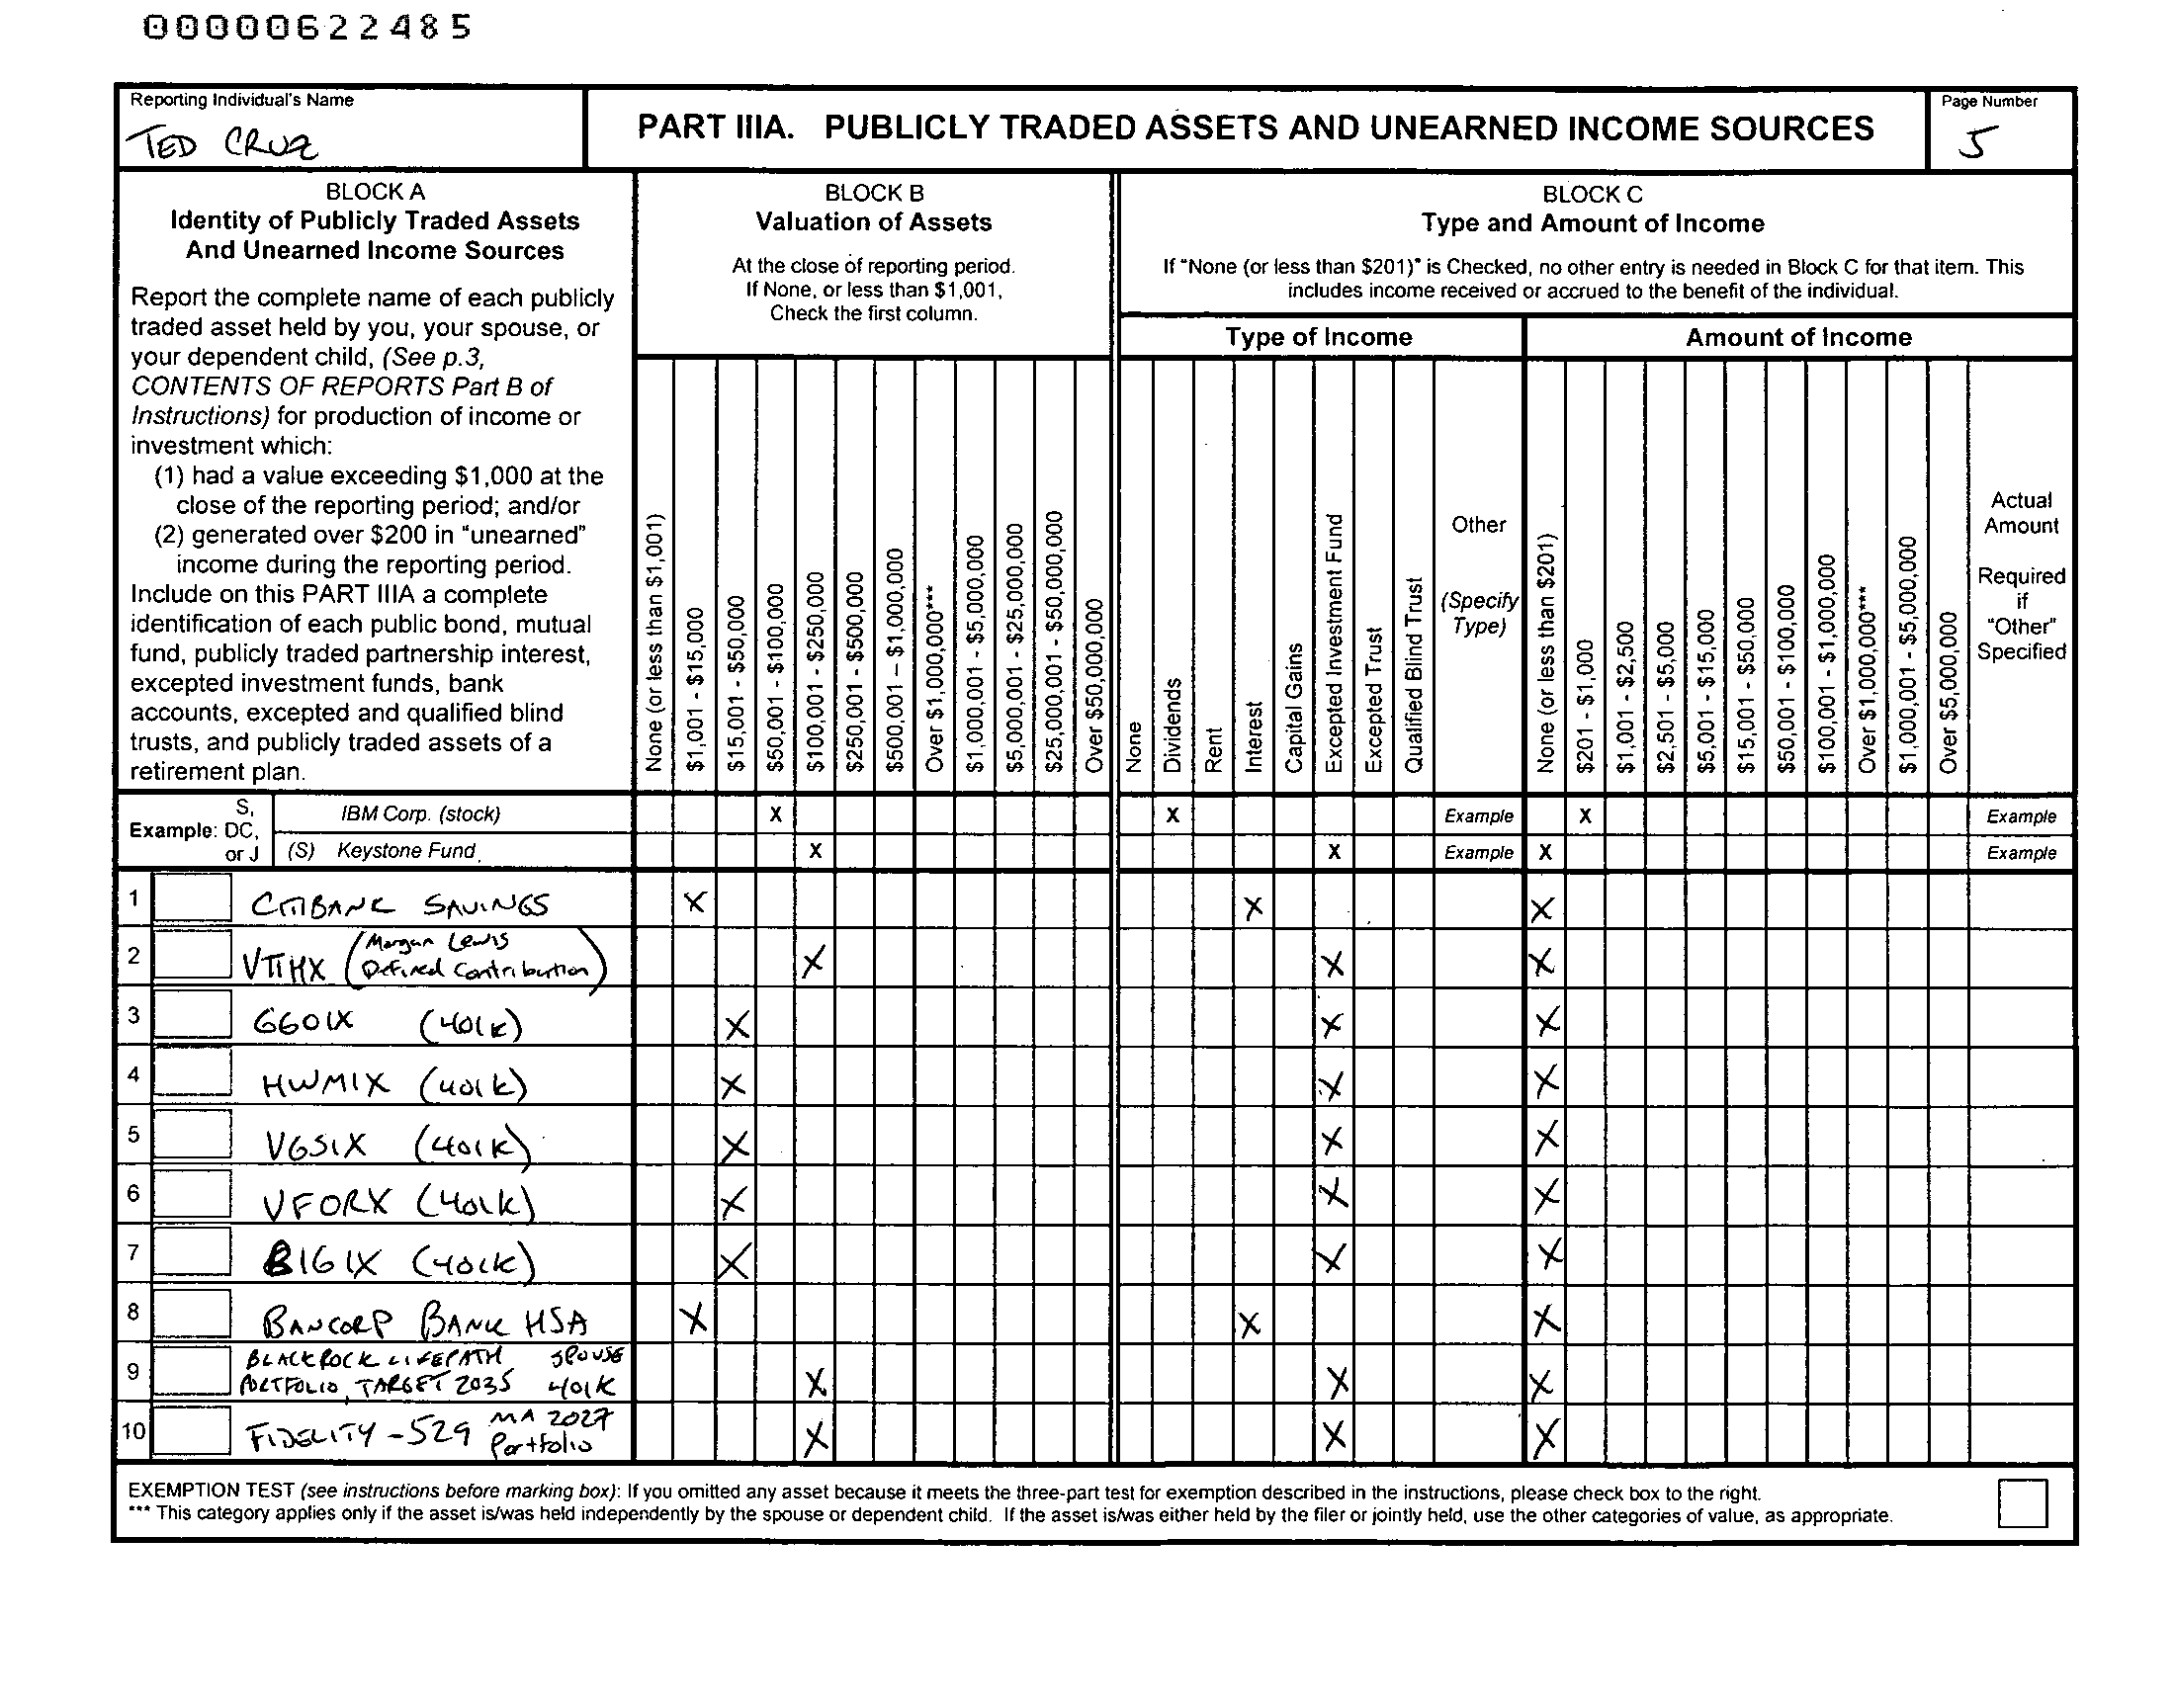 00000622485
Reporting Individual's Name
TED CRUZ
PART IIIA. PUBLICLY TRADED ASSETS AND UNEARNED INCOME SOURCES
Page Number
5
BLOCK A
Identity of Publicly Traded Assets
And Unearned Income Sources
Report the complete name of each publicly
traded asset held by you, your spouse, or
your dependent child, (See p.3,
CONTENTS OF REPORTS Part B of
Instructions) for production of income or
investment which:
(1) had a value exceeding $1,000 at the
close of the reporting period; and/or
(2) generated over $200 in "unearned"
income during the reporting period.
Include on this PART IIIA a complete
identification of each public bond, mutual
fund, publicly traded partnership interest,
excepted investment funds, bank
accounts, excepted and qualified blind
trusts, and publicly traded assets of a
retirement plan.
BLOCK B
Valuation of Assets
At the close of reporting period.
If None, or less than $1,001,
Check the first column.
None (or less than $1,001)
$1,001 - $15,000
$15,001 - $50,000
$50,001 - $100,000
$100,001 - $250,000
$250,001 - $500,000
$500,001 – $1,000,000
Over $1,000,000***
$1,000,001 - $5,000,000
$5,000,001 - $25,000,000
$25,000,001 - $50,000,000
Over $50,000,000
BLOCK C
Type and Amount of Income
If "None (or less than $201)" is Checked, no other entry is needed in Block C for that item. This
includes income received or accrued to the benefit of the individual.
Type of Income
None
Dividends
Rent
Interest
Capital Gains
Excepted Investment Fund
Excepted Trust
Qualified Blind Trust
Other
(Specify
Type)
Amount of Income
None (or less than $201)
$201 - $1,000
$1,001 - $2,500
$2,501 - $5,000
$5,001 - $15,000
$15,001 - $50,000
$50,001 - $100,000
$100,001 - $1,000,000
Over $1,000,000***
$1,000,001 - $5,000,000
Over $5,000,000
Actual
Amount
Required
if
"Other"
Specified
Example: S, DC, or J
IBM Corp. (stock) X X Example X Example
(S) Keystone Fund X X Example X Example
1 CITIBANK SAVINGS X X X
2 VTIHX (Morgan Lewis Defined Contribution) X X X
3 GGOIX (401k) X X X
4 HWMIX (401k) X X X
5 VGSIX (401k) X X X
6 VFORX (401k) X X X
7 BIGIX (401k) X X X
8 BANCORP BANK HSA X X X
9 BLACKROCK LIFEPATH PORTFOLIO, TARGET 2035 SPOUSE 401K X X X
10 FIDELITY - 529 MA 2027 Portfolio X X X
EXEMPTION TEST (see instructions before marking box): If you omitted any asset because it meets the three-part test for exemption described in the instructions, please check box to the right.
*** This category applies only if the asset is/was held independently by the spouse or dependent child. If the asset is/was either held by the filer or jointly held, use the other categories of value, as appropriate.